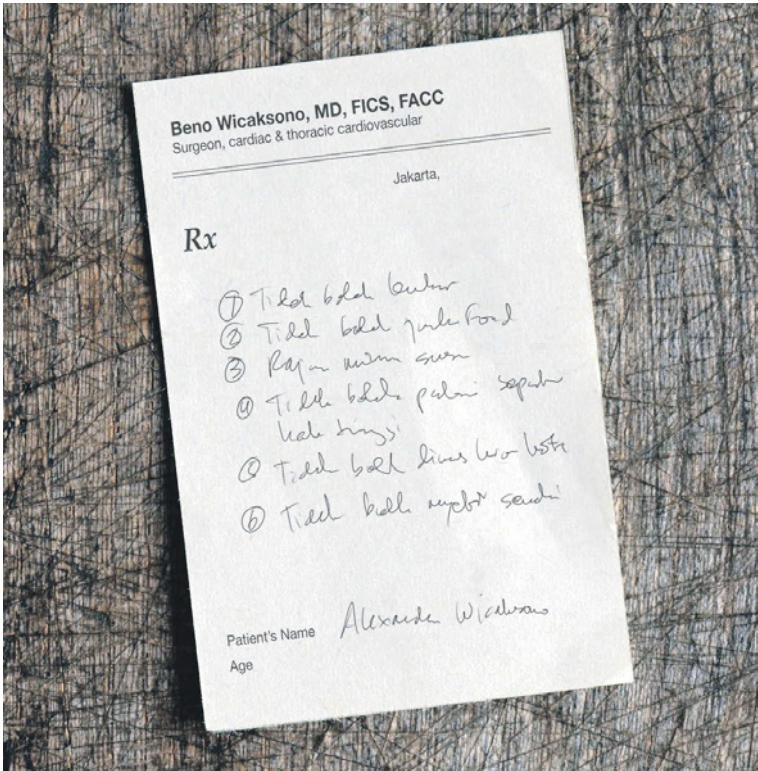 Beno Wicaksono, MD, FICS, FACC
Surgeon, cardiac & thoracic cardiovascular
Jakarta,
Rx
① Tidak boleh
② Tidak boleh junk food
③ Rajin minum susu
④ Tidak boleh pakai sepatu
hak tinggi
⑤ Tidak boleh dinas luar kota
⑥ Tidak boleh nyetir sendiri
Patient's Name Wicaksono
Age